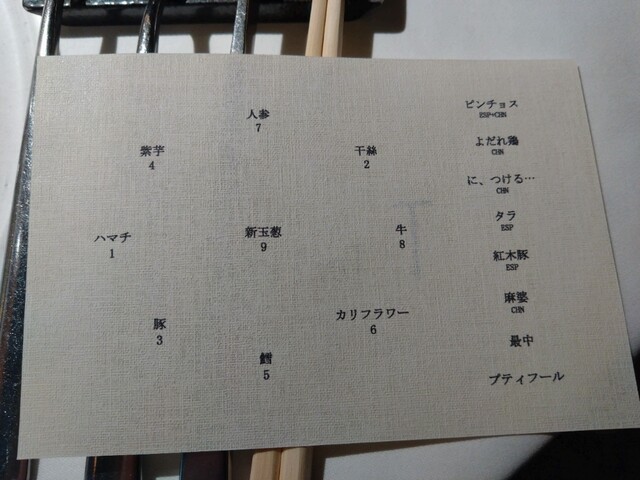 人参
7
紫芋
4
干絲
2
ハマチ
1
新玉葱
9
牛
8
豚
3
カリフラワー
6
鱈
5
ピンチョス
ESP+CHN
よだれ鶏
CHN
に、つける…
CHN
タラ
ESP
紅木豚
ESP
麻婆
CHN
最中
プティフール